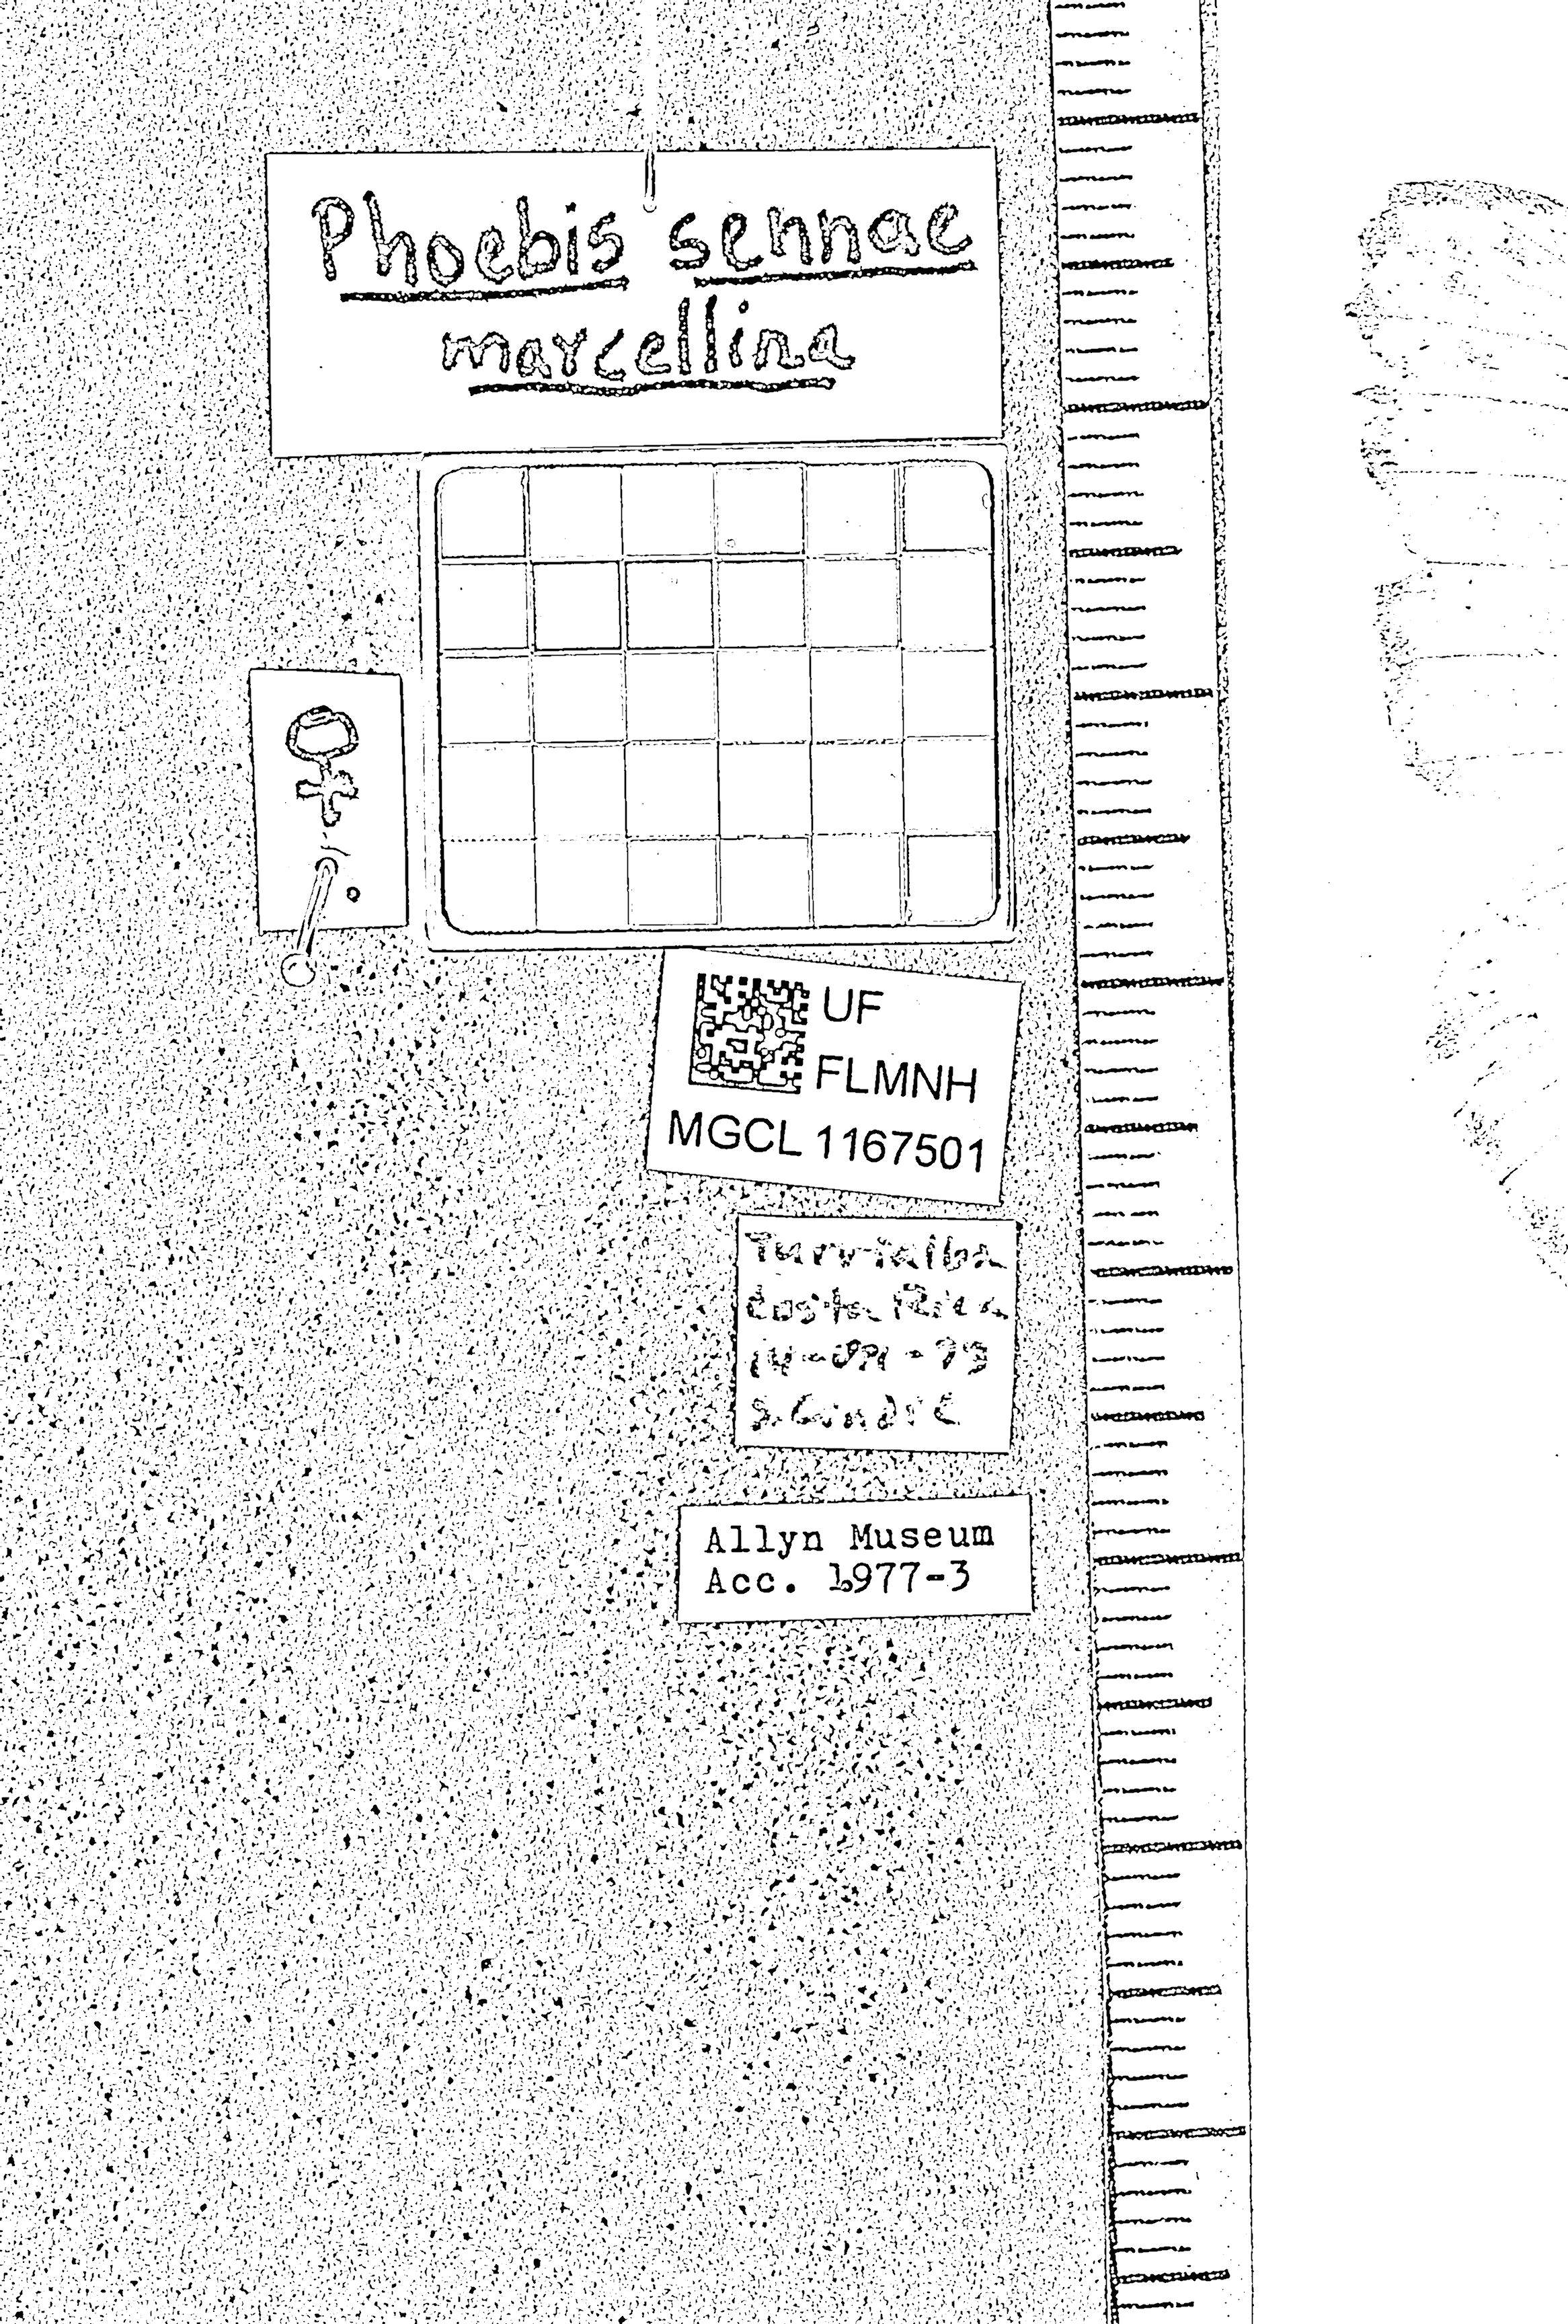 Phoebis sennae
marcellina
♀
UF
FLMNH
MGCL 1167501
Turrialba
Costa Rica
Allyn Museum
Acc. 1977-3